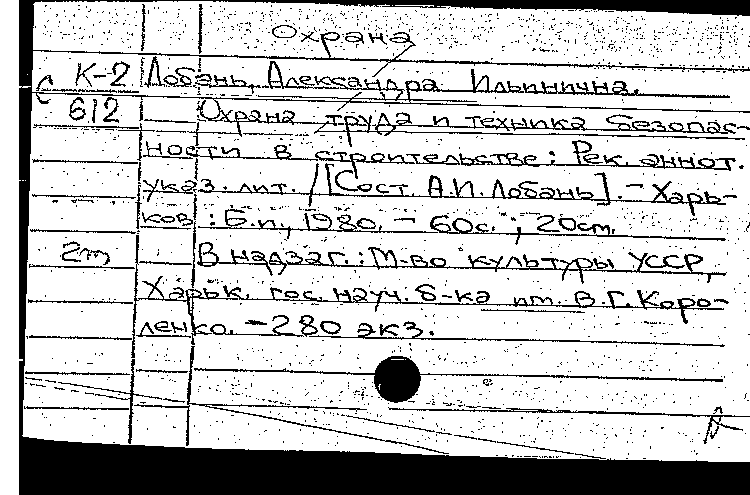 Охрана
К-2 Лобань, Александра Ильинична.
612 Охрана труда и техника безопас-
ности в строительстве: Рек. аннот.
указ. лит. / [Сост. А.И. Лобань]. - Харь-
ков : Б.и., 1980. - 60с. ; 20см.
2т В надзаг.: М-во культуры УССР,
Харьк. гос. науч. б-ка им. В.Г. Коро-
ленко. - 280 экз.